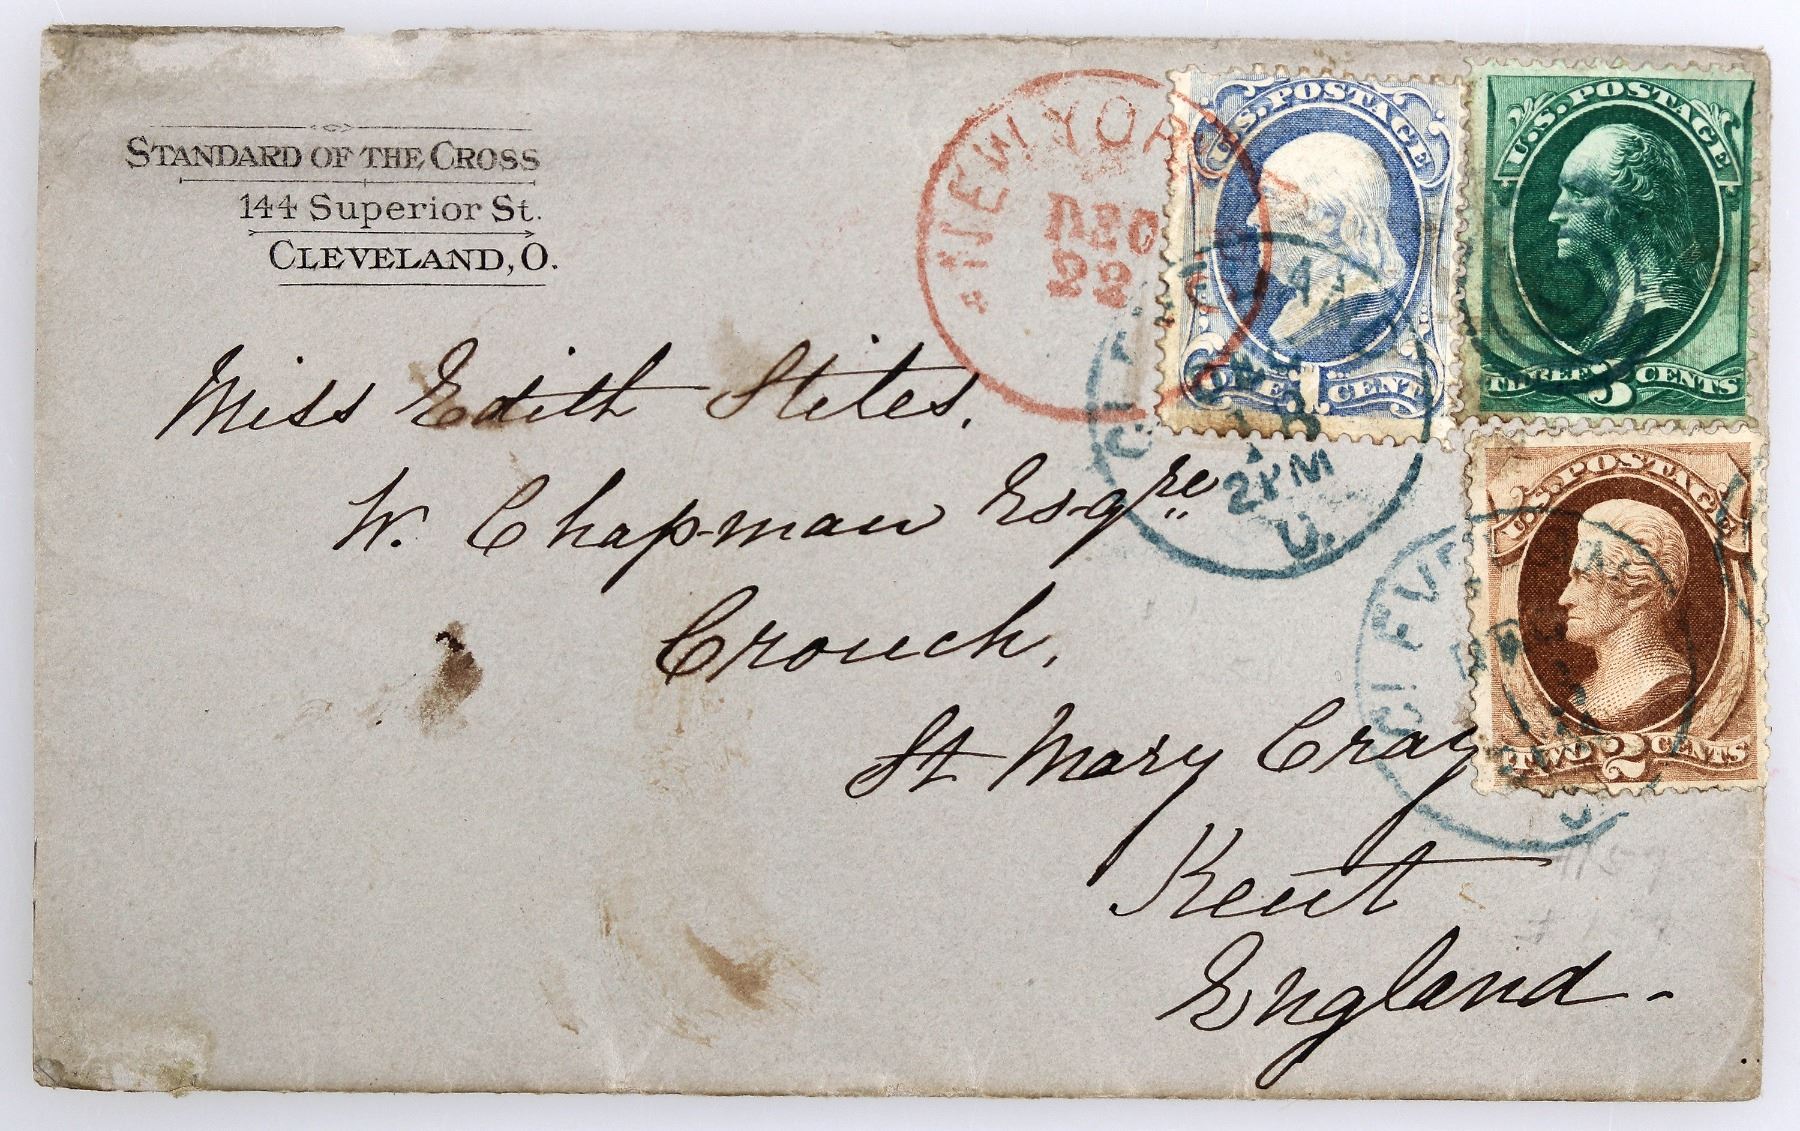 STANDARD OF THE CROSS
144 Superior St.
CLEVELAND, O.
NEW YORK
DEC
22
U.S. POSTAGE
ONE 1 CENT
U.S. POSTAGE
THREE 3 CENTS
U.S. POSTAGE
TWO 2 CENTS
2PM
O.
CLEVE
Miss Edith Stiles.
W. Chapman Esqre
Crouch,
St Mary Cray
Kent
England -